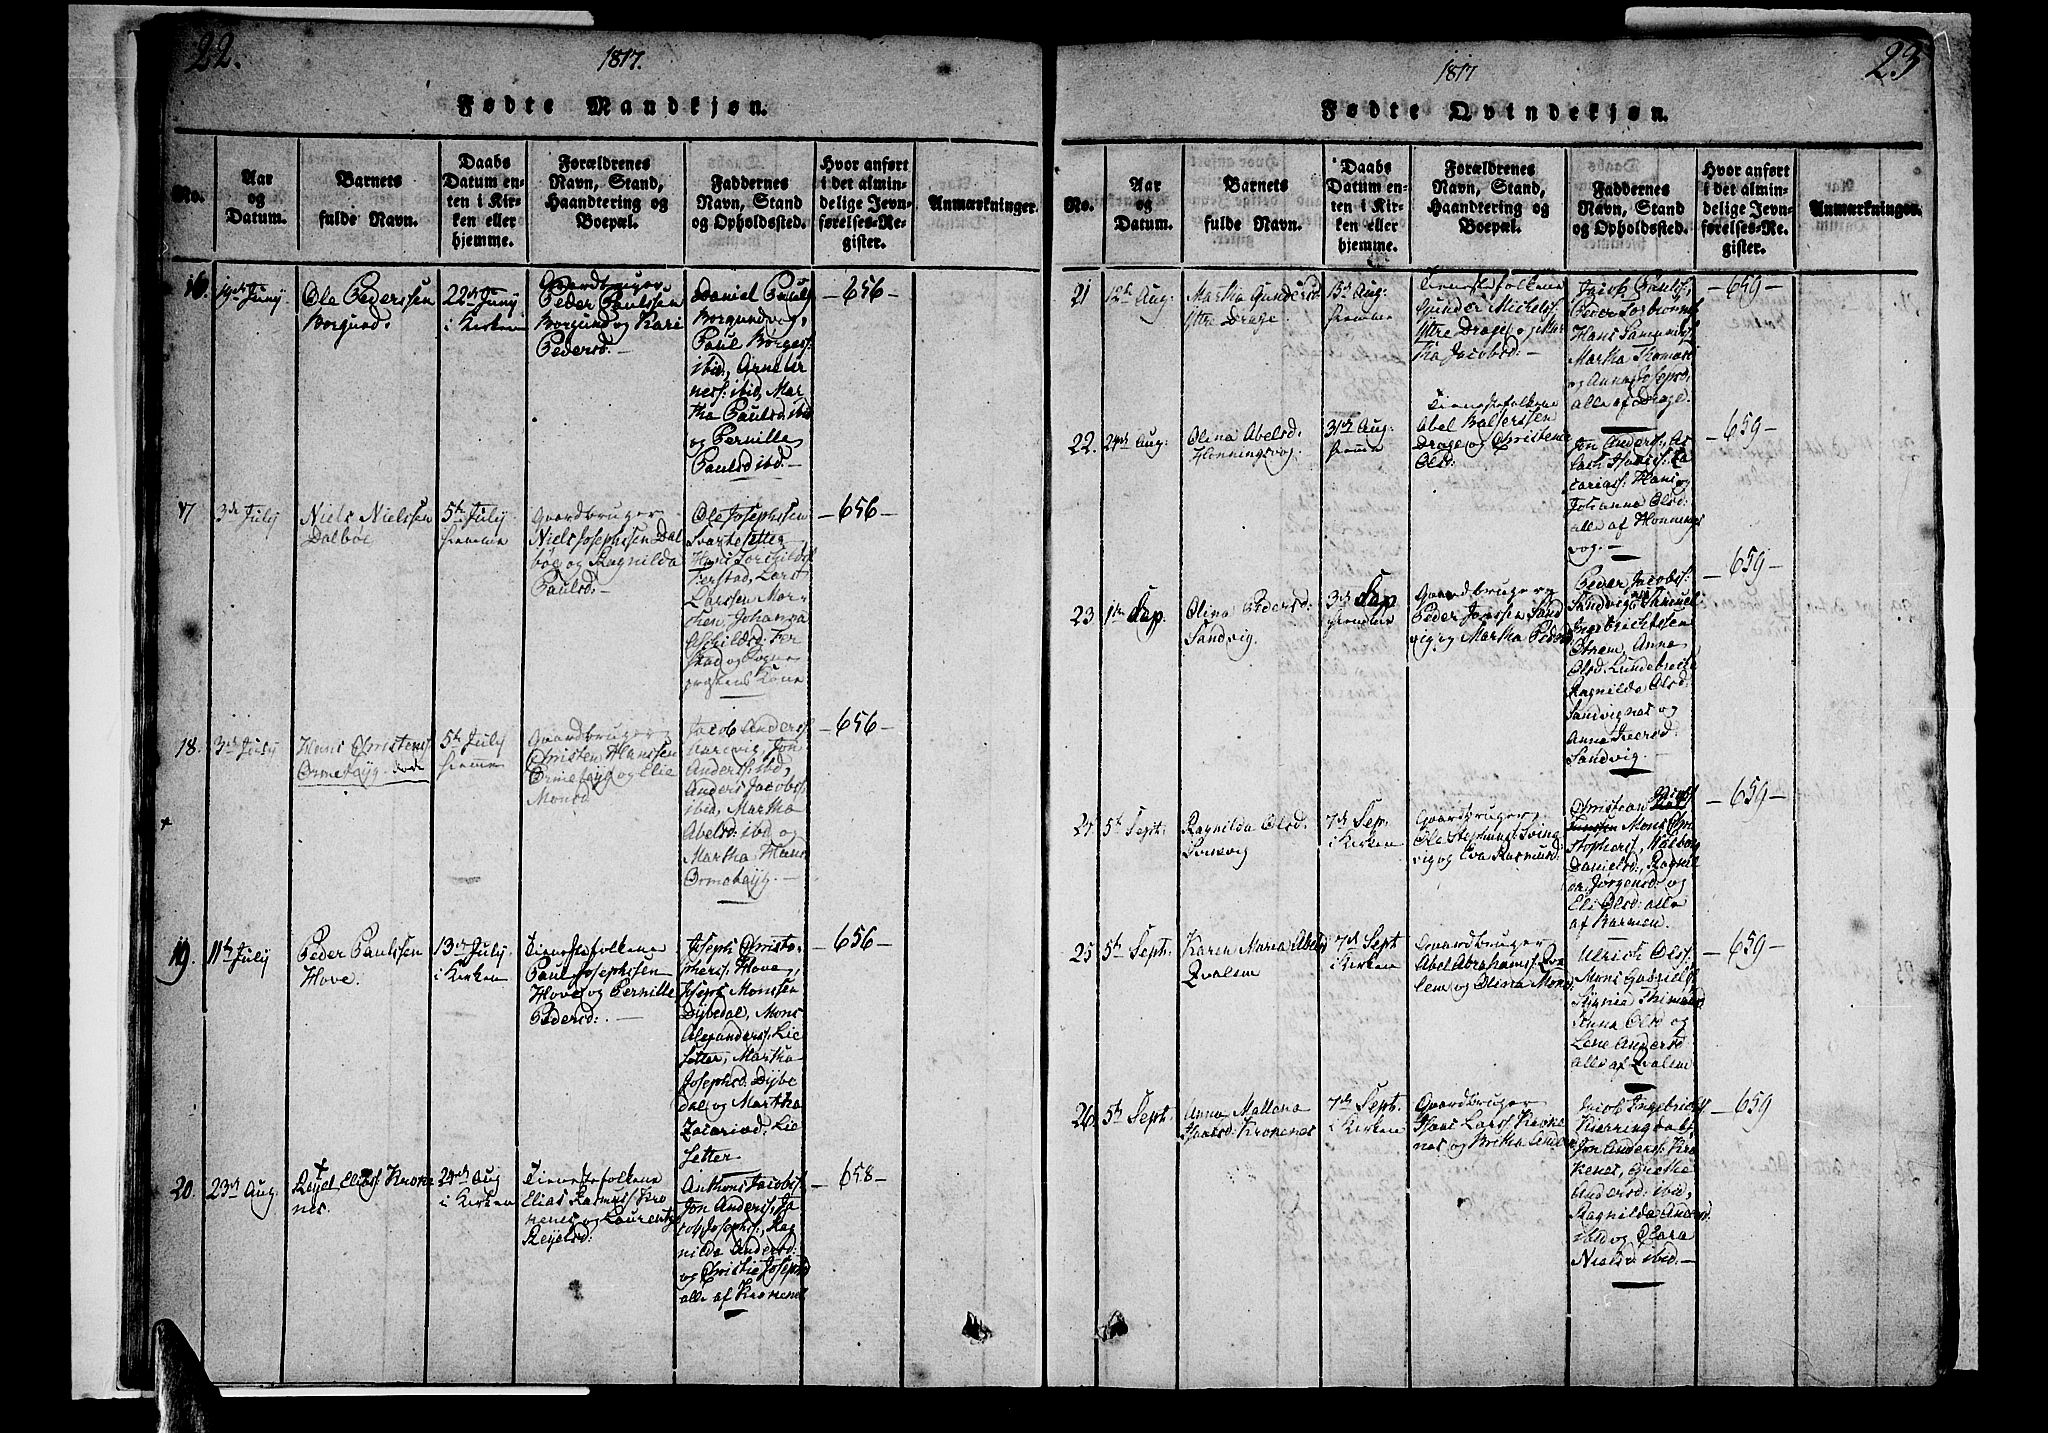 22.
1817.
Fødte Mandkjøn.
No.
Aar
og
Datum.
Barnets
fulde Navn.
Daabs
Datum en-
ten i Kir-
ken eller
hjemme.
Forældrenes
Navn, Stand,
Haandtering og
Boepæl.
Faddernes
Navn, Stand
og Opholdssted.
Hvor anført
i det almin-
delige Jevn-
førelses-Re-
gister.
Anmærkninger.
16.
19de Junij
Ole Pederssen
Borgund.
22de Junij
i Kirken
Gaardbruger
Peder Paulssen
Borgund og Kari
Pedersd.
Daniel Pauls:
Borgundvog,
Paul Borges:
ibid, Arne Ar
ness: ibid, Mar
tha Paulsd: ibid
og Pernille
Paulsd ibd.
656
17
3de July
Niels Nielssen
Dalbøe
5te July
hjemme
Gaardbruger
Niels Josephssen Dal
bøe og Ragnilda
Paulsd:
Ole Josephssen
Svartesetter
Hans
Ferstad, Lars
Larssen Mor-
chen, Johanna
Eschildsd: Fer
stad og Sogne
præstens Kone
656
18.
3de July
Hans Christens:
Ormehøjg. død
5te July
hjemme
Gaardbruger
Christen Hanssen
Ormehøjg og Elie
Monsd
Jacob Anders:
Aarevig, Jon
Anders: ibd,
Anders Jacobs:
ibid, Martha
Abelsd: ibd og
Martha Hans
Ormehøjg.
656
19.
11te July
Peder Paulssen
Hove.
13de July
i Kirken
Tienestefolkene
Paul Josephssen
Hove og Pernille
Pedersd:
Joseph Christo-
phers: Hove,
Joseph Monssen
Dybedal, Mons
Alexanders: Lie
setter, Martha
Josephsd: Dybe
dal og Martha
Zacariæd: Lie
setter
656
20.
23de Aug.
Reyel Elias: Krone
nes.
24de Aug
i Kirken
Tienestefolkene
Elias Rasmus: Kro
nenes og Laurentze
Reyelsd:
Anthons Jacobs:
Jon Anders: Ja
cob Josephs:, Rag
nilda Andersd:
og Christie Josephs
alle af Kronenes
658
23
1817
Fødte Qvindekjøn.
No.
Aar
og
Datum.
Barnets
fulde Navn.
Daabs
Datum en-
ten i Kir-
ken eller
hjemme.
Forældrenes
Navn, Stand,
Haandtering og
Boepæl.
Faddernes
Navn, Stand
og Opholdssted.
Hvor anført
i det almin-
delige Jevn-
førelses-Re-
gister.
Anmærkninger.
21
12te Aug:
Martha Gundersd
Yttre Drage.
Aug:
hjemme
Tienestefolkene
Gunder Michels:
Yttre Drage og Mar
tha Jacobsd:
Jacob Pauls:,
Peder
Hans
Martha Thomæ
og Anna Josepsd,
alle af Drage.
659
22.
24de Aug:
Olina Abelsd.
Honningsvog.
31te Aug:
hjemme
Tienestefolkene
Abel Balserssen
Drage og Christence
Olsd:
Jon Anders:, Ja
cob Hans: Za
carias: Hans og
Johanna Olsd:
alle af Honnings
vog.
659
23
1te Sep.
Olina Pedersd:
Sandvig.
3de Sep
hjemme
Gaardbruger
Peder Jonssen Sand
vig og Martha Peders
Peder Jacobs:
Sandvig, Samuel
Ingebrichtssen
Otrem, Anna
Olsd: Lundebrecke
Ragnilda Olsd:
Sandvignes og
Anna Iversd
Sandvig.
659
24
5te Sept:
Ragnilda Olsd.
7de Sep.
i Kirken
Gaardbruger
Ole Stephens:
vig og Eva Rasmusd:
Christian
Mons Chri
stophers:, Walborg
Danielsd:, Ragnil
da Jørgensd: og
Eli Olsd: alle
af Barmen.
659
25
5te Sept:
Karen Maria Abelsd
Qvalem
7de Sept
i Kirken
Gaardbruger
Abel Abrahams: Qva
lem og Olina Monsd
Ulrich Ols:
Mons Gabriels
Synnie Thimæd
Anna Olsd og
Lene Andersd
alle af Qvalem
659
26.
5te Sept:
Anna Mallena
Hansd: Kronenes
7de Sept.
i Kirken
Gaardbruger
Hans Lars: Krone
nes og Britha
Jacob Ingebrichs:
Jon Anders: Kro
kenes, Grethe
Andersd: ibid,
Ragnilda Andersd
ibid og Clara
Nielsd: ibid.
659